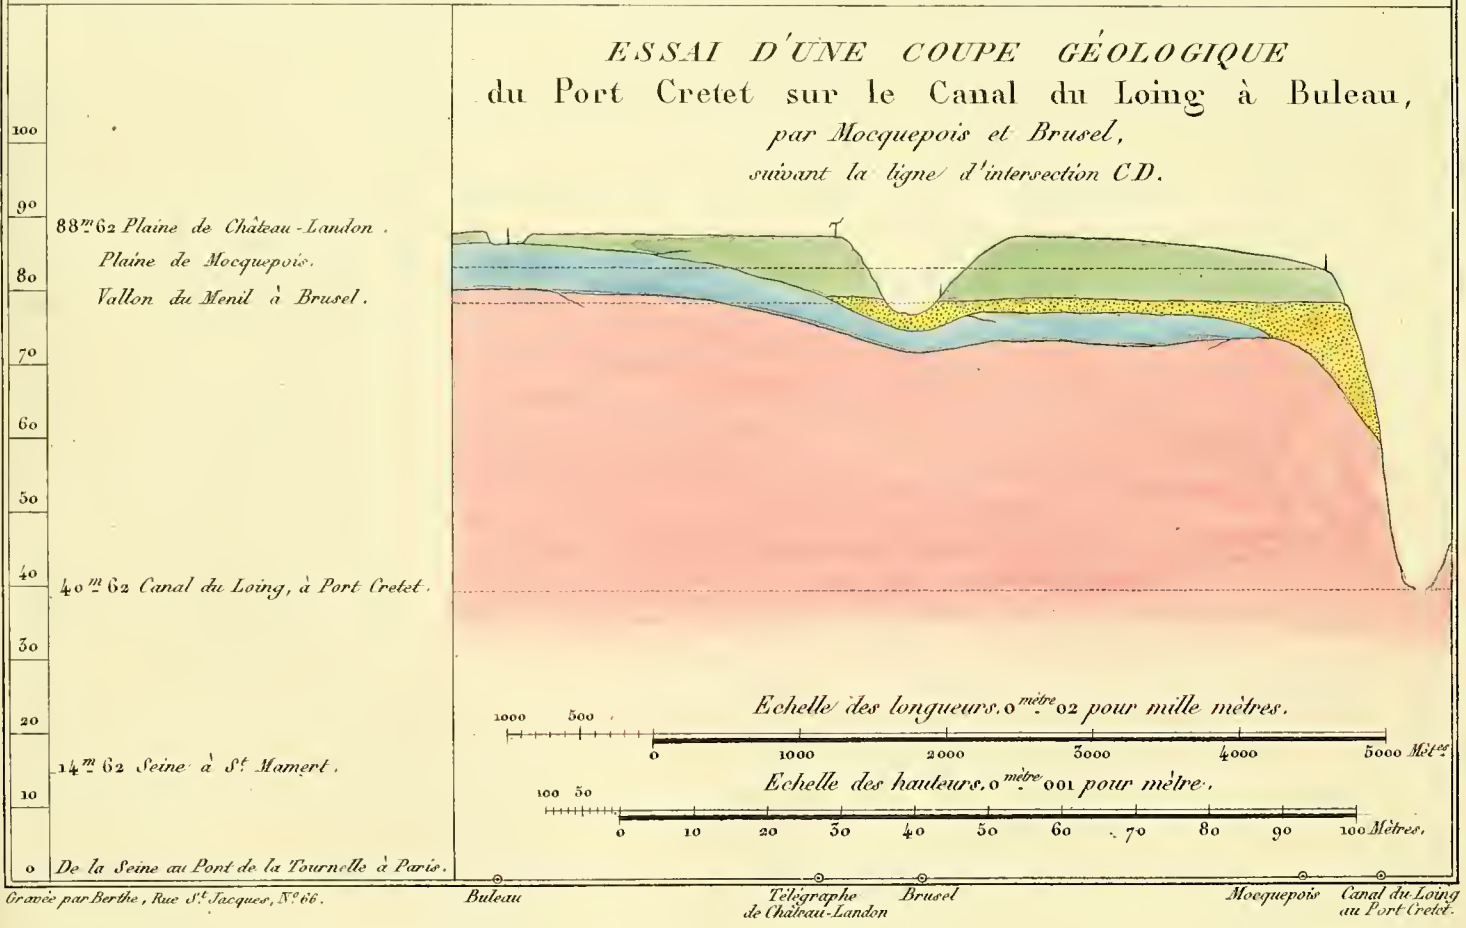 ESSAI D'UNE COUPE GÉOLOGIQUE
du Port Cretet sur le Canal du Loing à Buleau,
par Mocquepois et Brusel,
suivant la ligne d'intersection C D.
100
90
88.m 62 Plaine de Château-Landon.
Plaine de Mocquepois.
80
Vallon du Menil à Brusel.
70
60
50
40
40.m 62 Canal du Loing, à Port Cretet.
30
20
14.m 62 Seine à St. Mamert.
10
0 De la Seine au Pont de la Tournelle à Paris.
Echelle des longueurs. 0 mètre 02 pour mille mètres.
1000 500
0 1000 2000 3000 4000 5000 Mètes
Echelle des hauteurs. 0 mètre 001 pour mètre.
100 50
0 10 20 30 40 50 60 70 80 90 100 Mètres.
Gravée par Berthe, Rue St. Jacques, No. 66.
Buleau
Télégraphe
de Château-Landon
Brusel
Mocquepois
Canal du Loing
au Port Cretet.